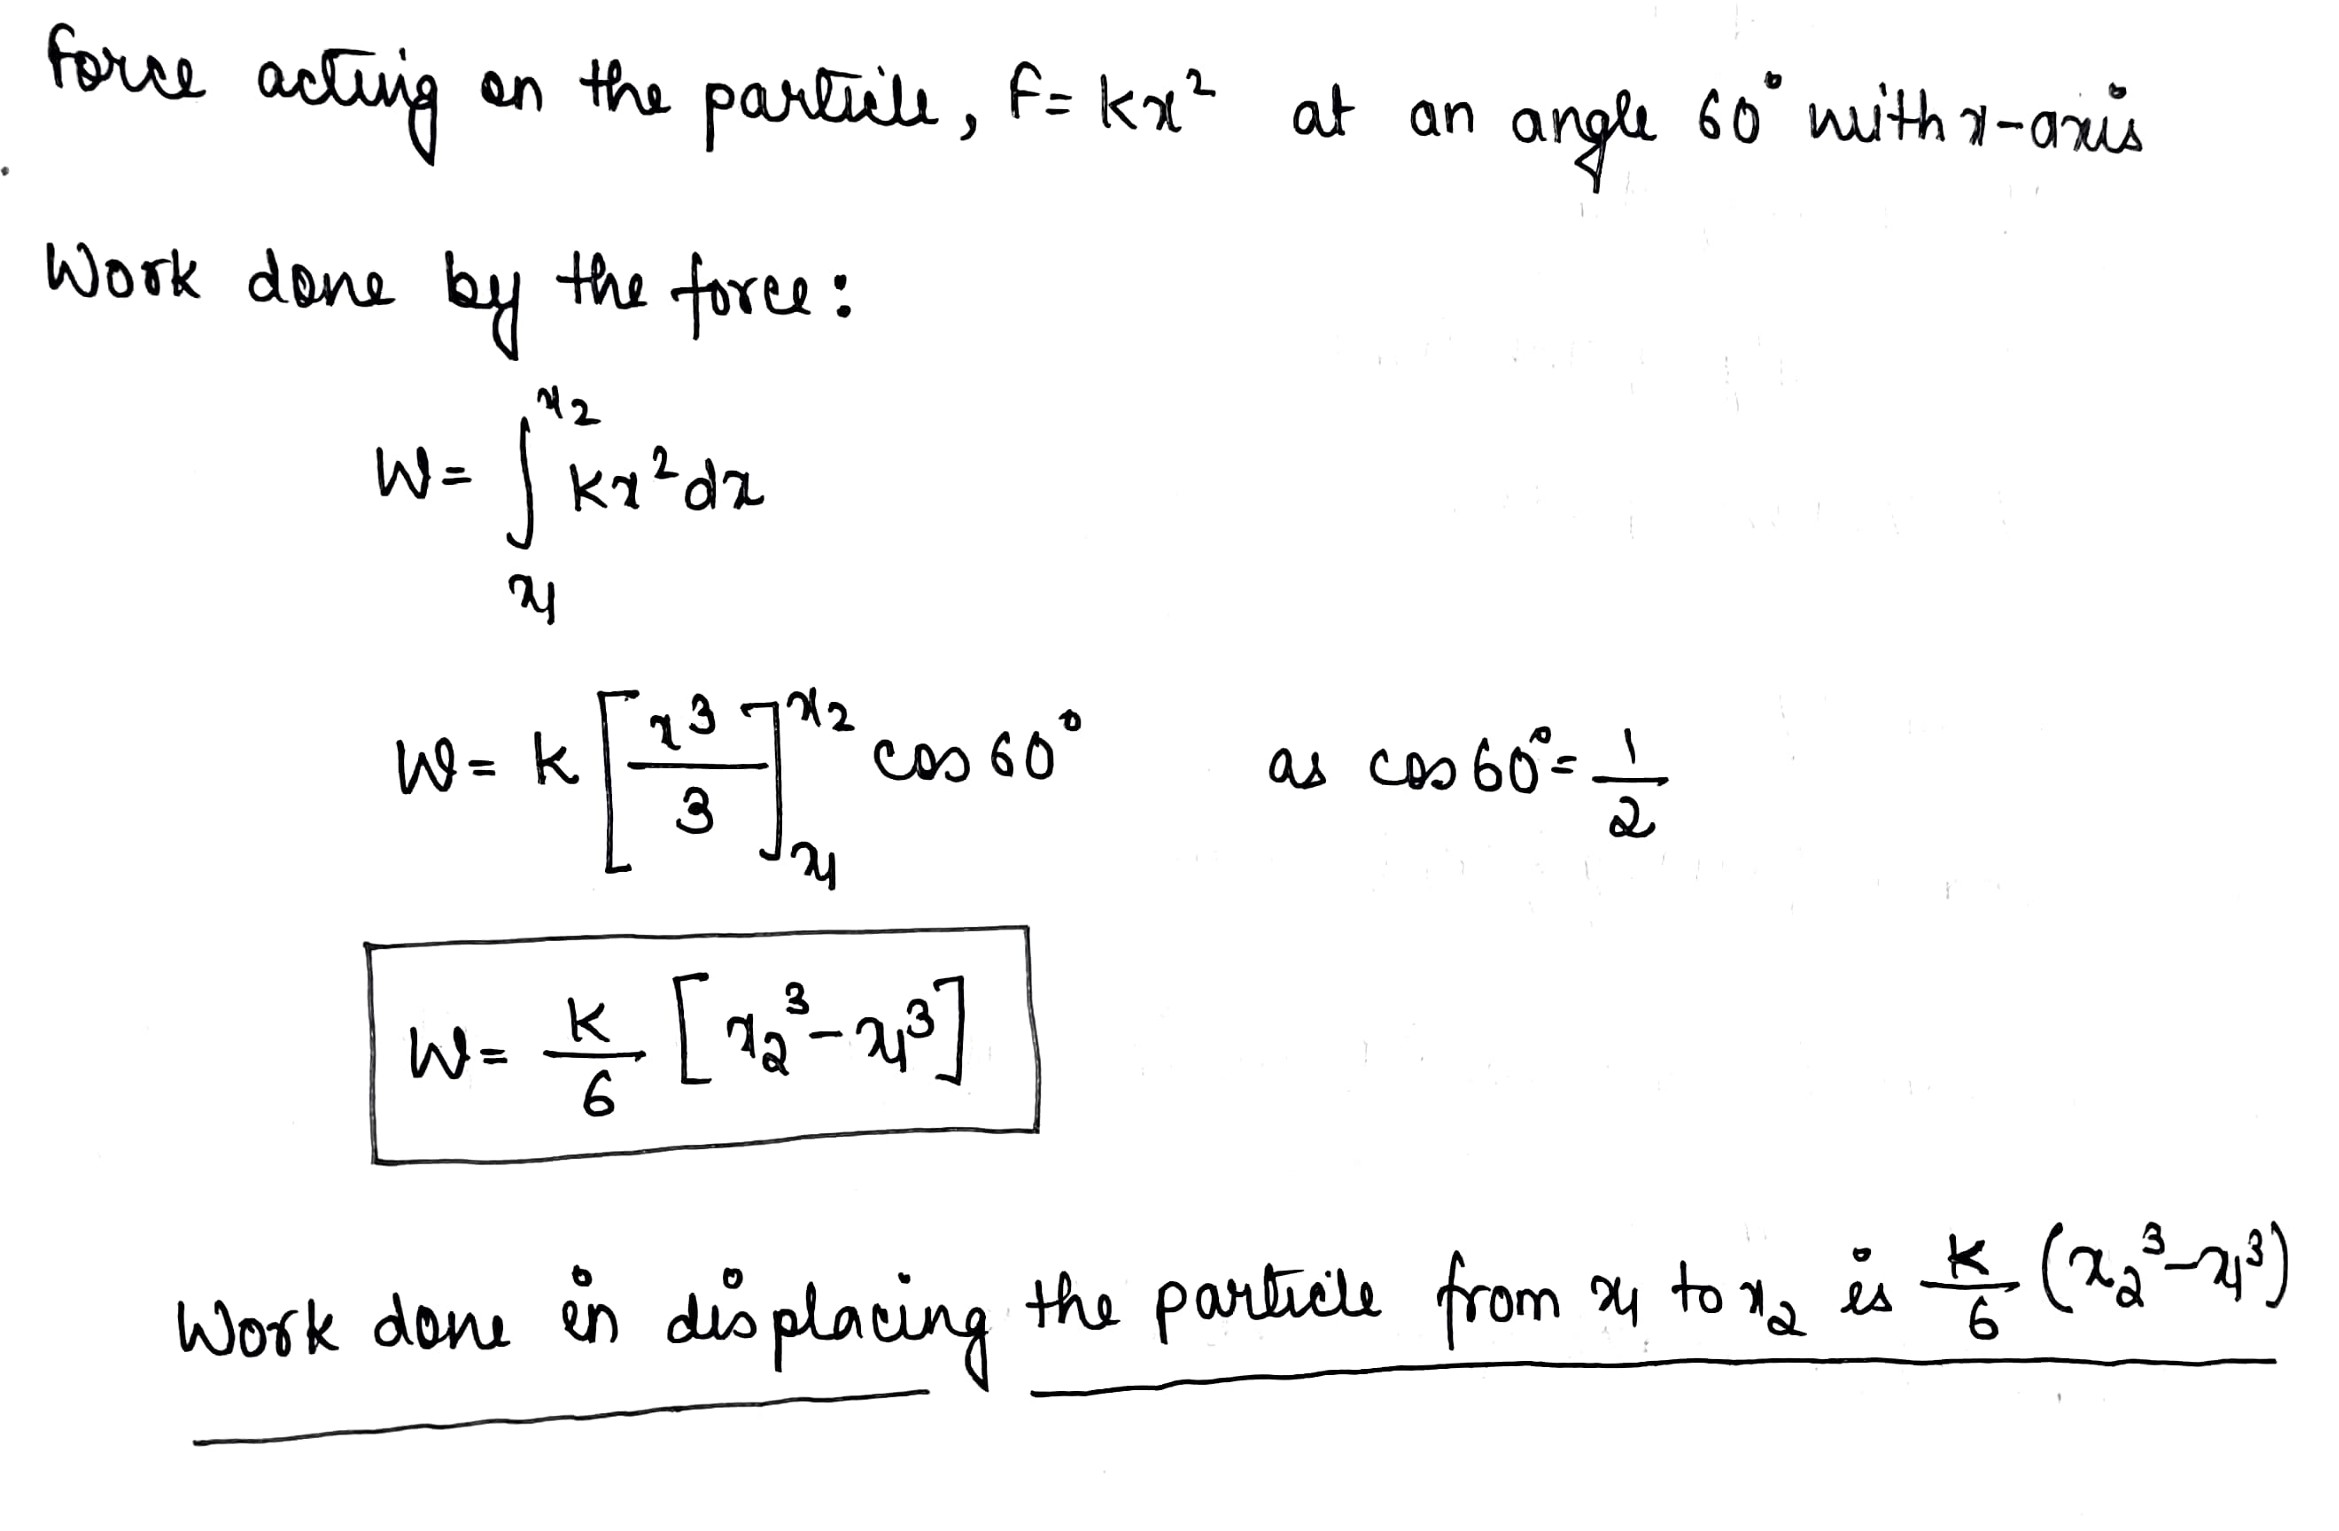 Force acting on the particle, F = kx² at an angle 60° with x-axis
Work done by the force:
W = ∫_{x₁}^{x₂} kx² dx
W = k [x³/3]_{x₁}^{x₂} cos 60° as cos 60° = 1/2
W = k/6 [x₂³ - x₁³]
Work done in displacing the particle from x₁ to x₂ is k/6 (x₂³ - x₁³)